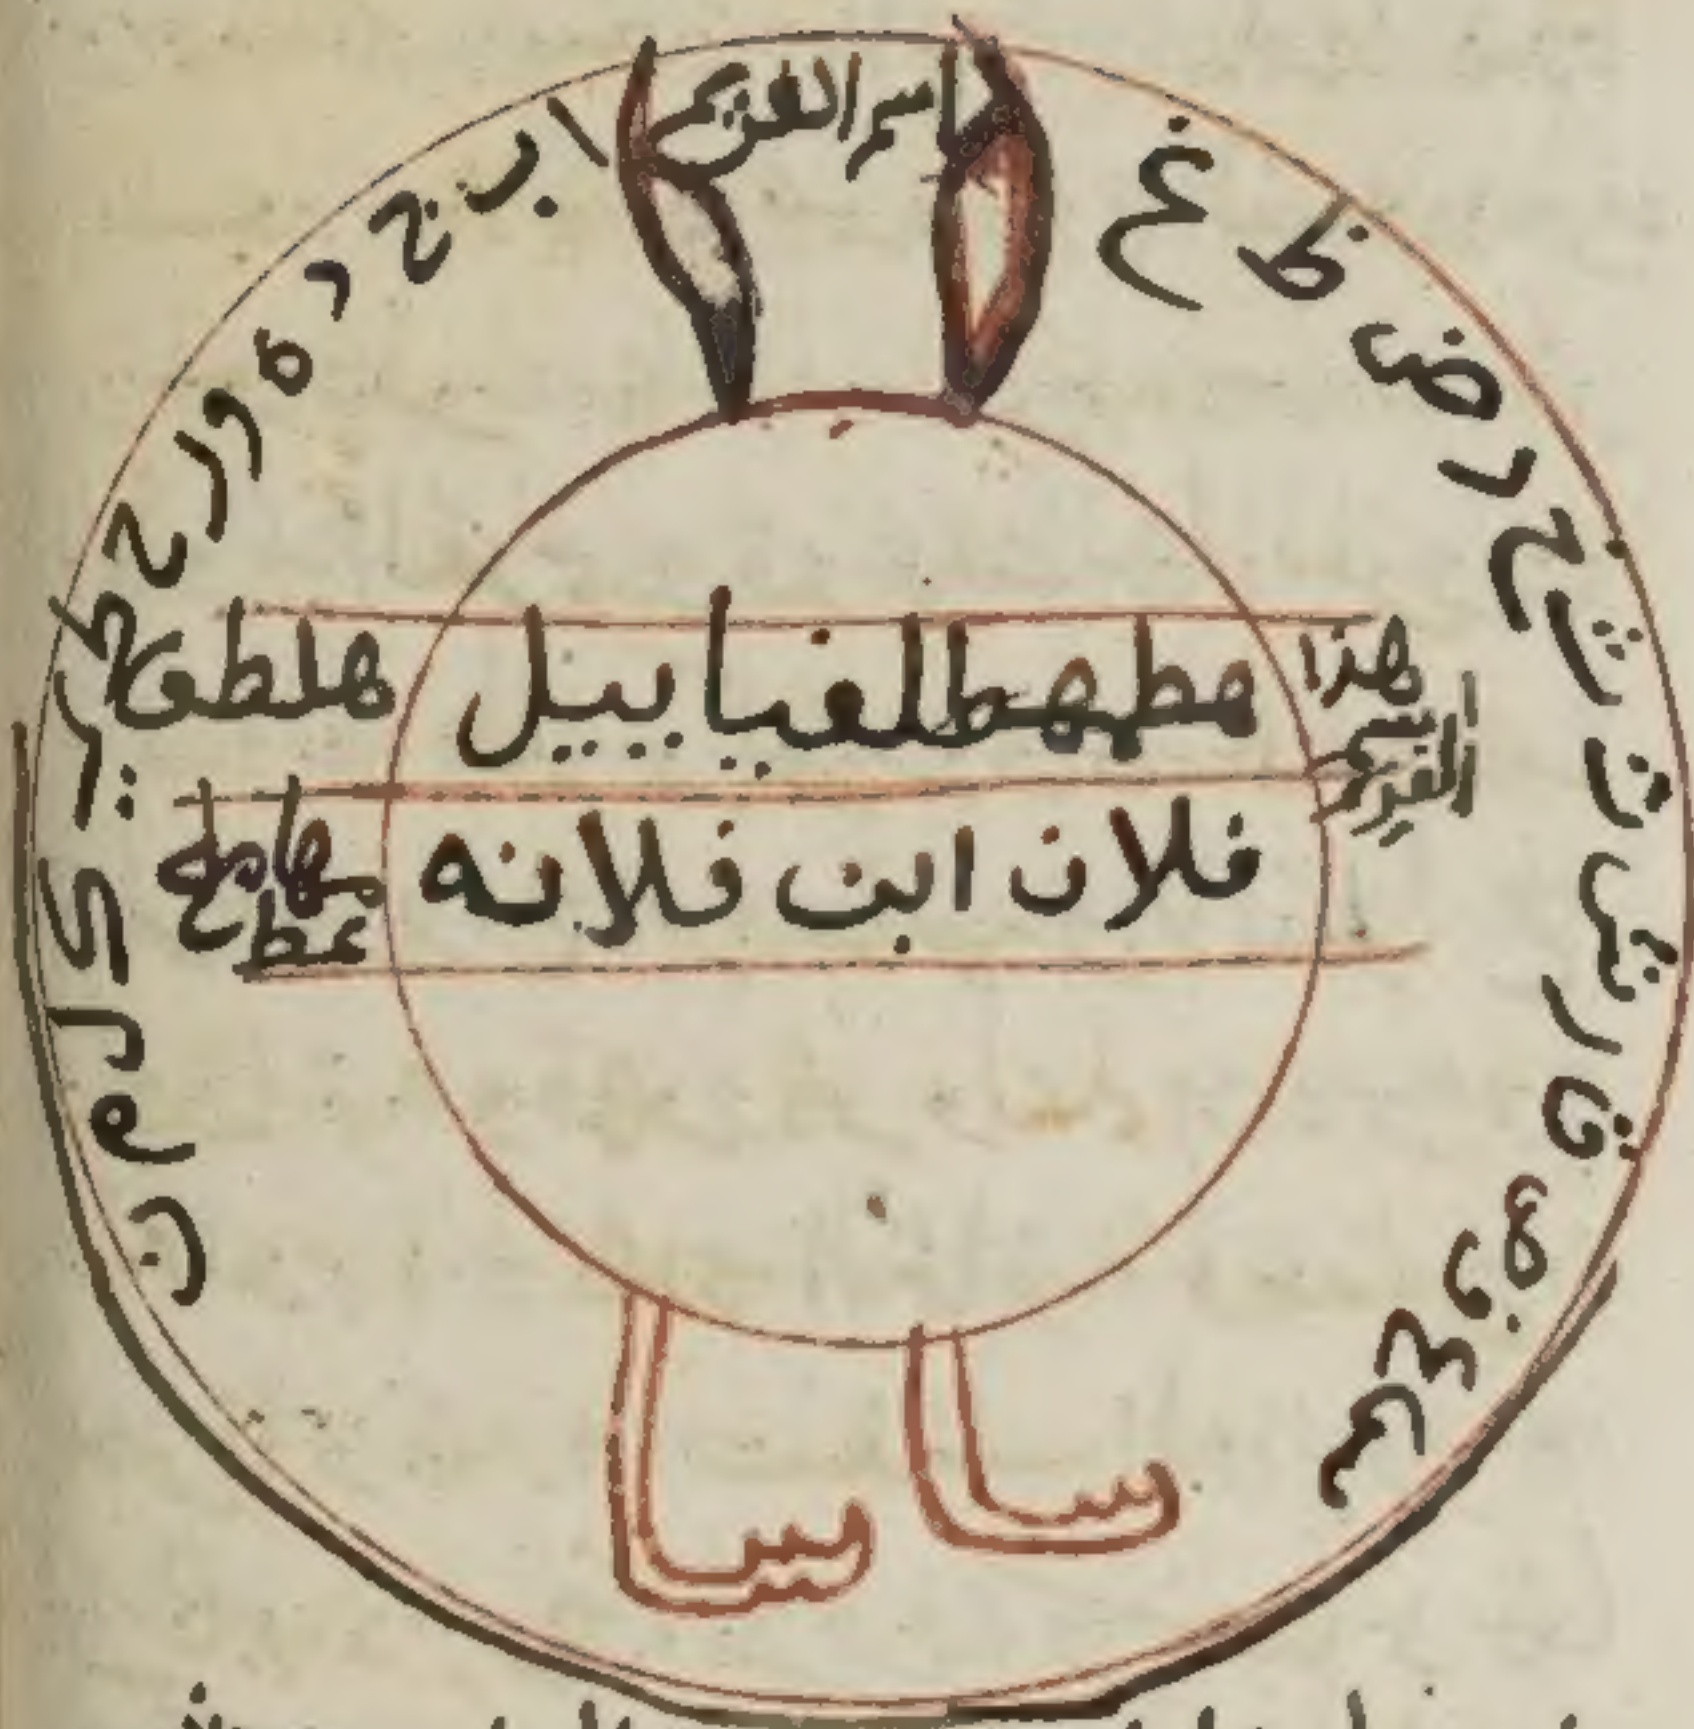 اسم الغريم
ا ب ج د ه و ز ح ط ي ك ل م ن
س ع ف ص ق ر ش ت ث خ ذ ض ظ غ
هذا اسم الغريم
مطهطهطلغيابييل
هلطف
فلان ابن فلانه